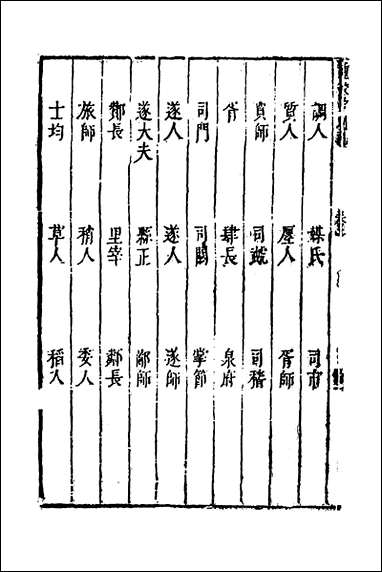 調人　媒氏　司市
質人　廛人　胥師
賈師　司虣　司稽
胥　肆長　泉府
司門　司關　掌節
遂人　遂人　遂師
遂大夫　縣正　鄙師
酇長　里宰　鄰長
旅師　稍人　委人
士均　草人　稻人